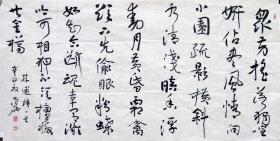 眾芳搖落獨暄
妍占盡風情向
小園疏影橫斜
水清淺暗香浮
動月黃昏霜禽
欲下先偷眼粉蝶
如知合斷魂幸有微
吟可相狎不須檀板
共金樽
林逋詩